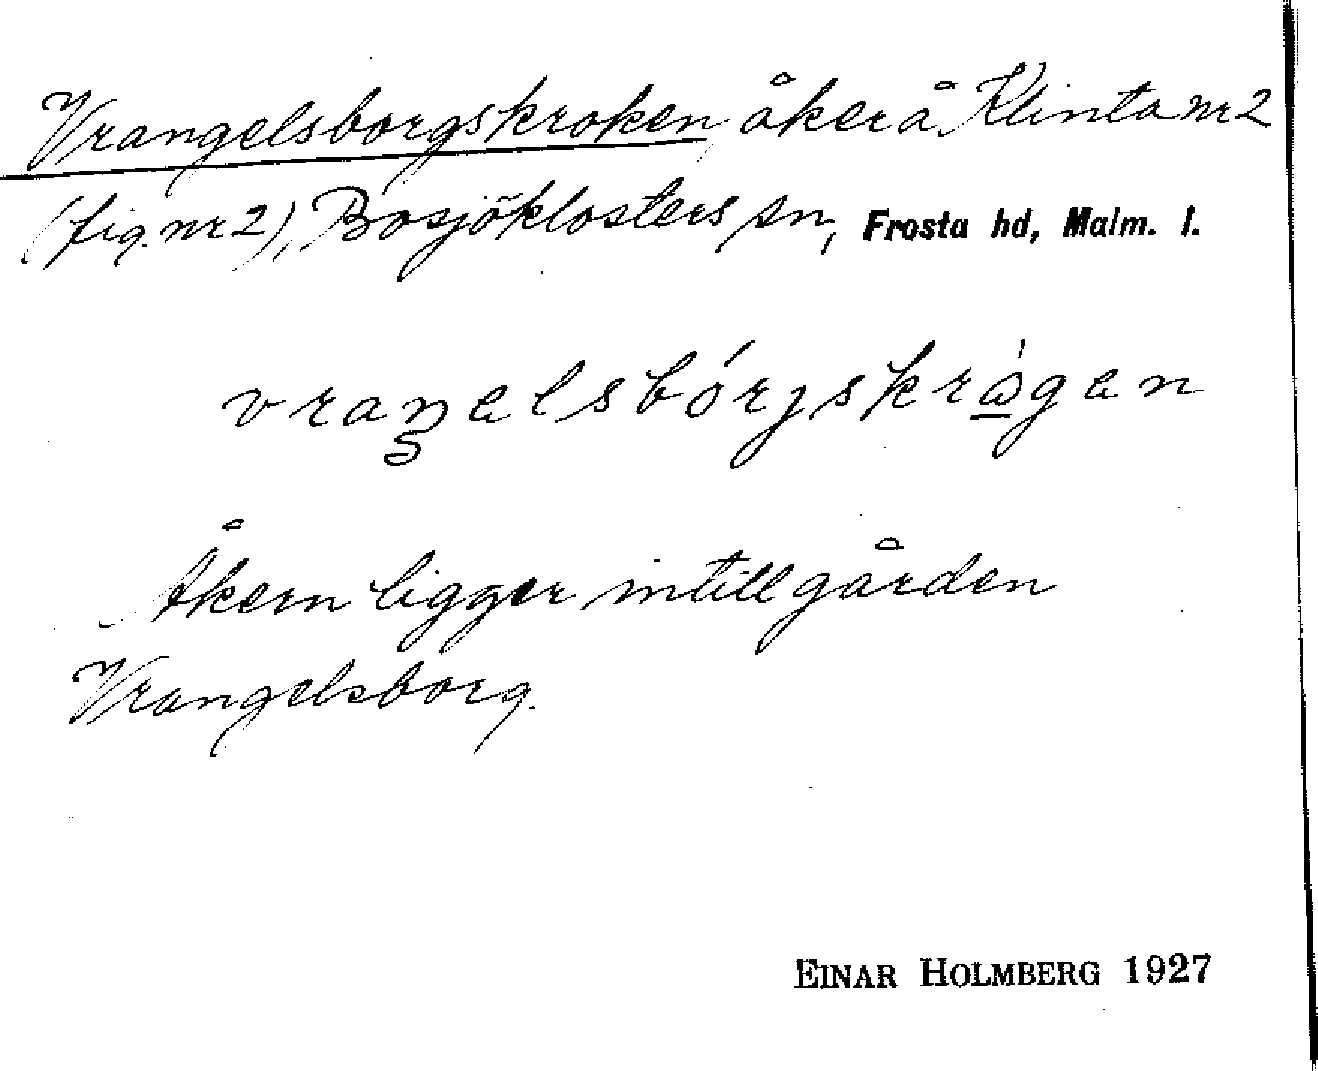 Vrangelsborgskroken, åker å Klinta nr 2
(fig. nr 2), Bosjöklosters sn, Frosta hd, Malm. l.
vraŋelsbórjskrǻgen
Åkern ligger intill gården
Vrangelsborg.
EINAR HOLMBERG 1927